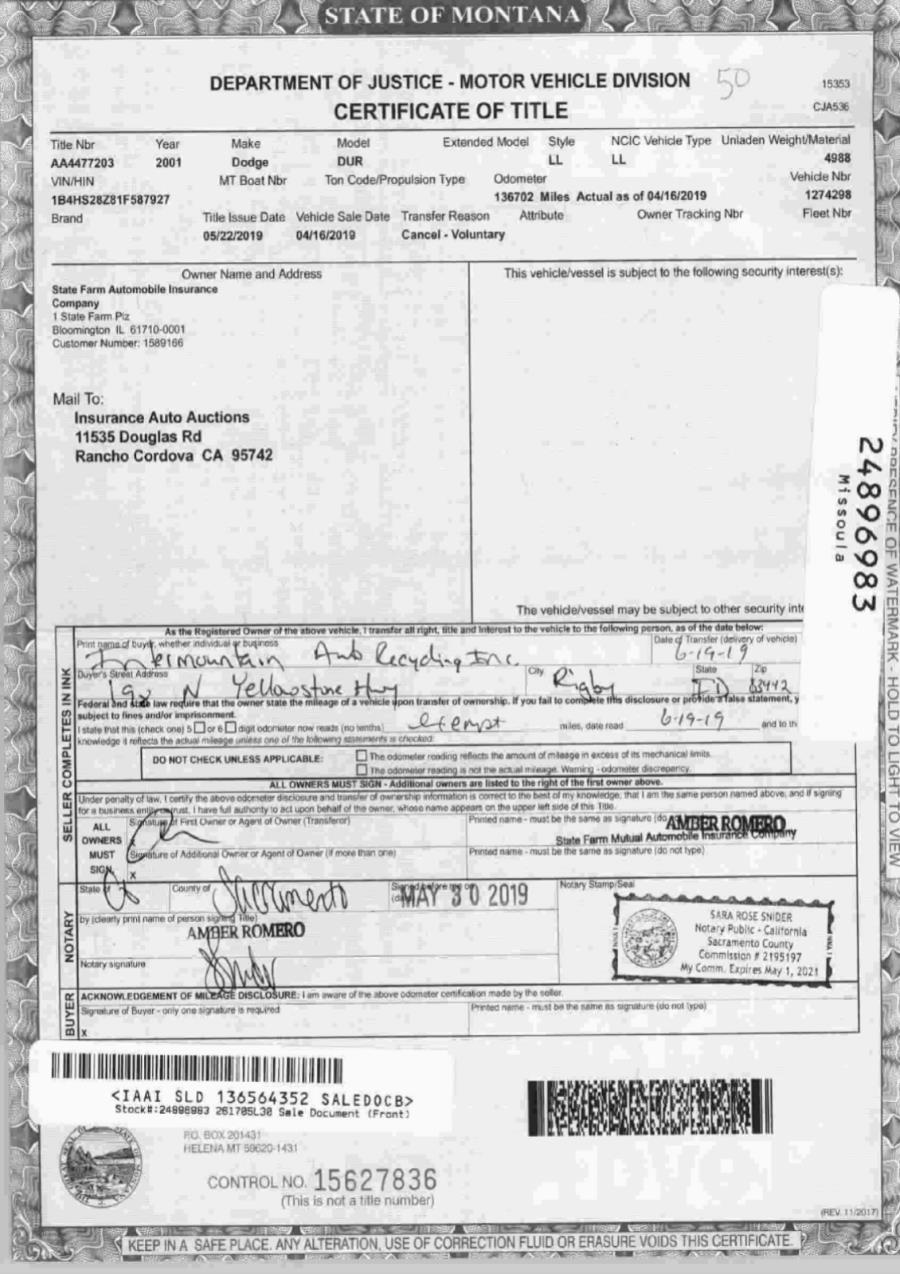 STATE OF MONTANA
DEPARTMENT OF JUSTICE - MOTOR VEHICLE DIVISION 50 15353
CERTIFICATE OF TITLE CJA536
Title Nbr Year Make Model Extended Model Style NCIC Vehicle Type Unladen Weight/Material
AA4477203 2001 Dodge DUR LL LL 4988
VIN/HIN MT Boat Nbr Ton Code/Propulsion Type Odometer Vehicle Nbr
1B4HS28Z81F587927 136702 Miles Actual as of 04/16/2019 1274298
Brand Title Issue Date Vehicle Sale Date Transfer Reason Attribute Owner Tracking Nbr Fleet Nbr
05/22/2019 04/16/2019 Cancel - Voluntary
Owner Name and Address
This vehicle/vessel is subject to the following security interest(s):
State Farm Automobile Insurance
Company
1 State Farm Plz
Bloomington IL 61710-0001
Customer Number: 1589166
Mail To:
Insurance Auto Auctions
11535 Douglas Rd
Rancho Cordova CA 95742
24896983
Missoula
PRESENCE OF WATERMARK - HOLD TO LIGHT TO VIEW
The vehicle/vessel may be subject to other security inte
SELLER COMPLETES IN INK
As the Registered Owner of the above vehicle, I transfer all right, title and interest to the vehicle to the following person, as of the date below:
Print name of buyer, whether individual or business Date of Transfer (delivery of vehicle)
Intermountain Auto Recycling Inc. 6-19-19
Buyer's Street Address City State Zip
192 N Yellowstone Hwy Rigby ID 83442
Federal and state law require that the owner state the mileage of a vehicle upon transfer of ownership. If you fail to complete this disclosure or provide a false statement, y
subject to fines and/or imprisonment.
I state that this (check one) 5 or 6 digit odometer now reads (no tenths) exempt miles, date read 6-19-19 and to th
knowledge it reflects the actual mileage unless one of the following statements is checked:
DO NOT CHECK UNLESS APPLICABLE:
The odometer reading reflects the amount of mileage in excess of its mechanical limits.
The odometer reading is not the actual mileage. Warning - odometer discrepancy.
ALL OWNERS MUST SIGN - Additional owners are listed to the right of the first owner above.
Under penalty of law, I certify the above odometer disclosure and transfer of ownership information is correct to the best of my knowledge, that I am the same person named above, and if signing
for a business entity/trust, I have full authority to act upon behalf of the owner, whose name appears on the upper left side of this Title.
ALL OWNERS MUST SIGN
Signature of First Owner or Agent of Owner (Transferor) Printed name - must be the same as signature (do AMBER ROMERO
x State Farm Mutual Automobile Insurance Company
Signature of Additional Owner or Agent of Owner (if more than one) Printed name - must be the same as signature (do not type)
x
NOTARY
State of CA County of Sacramento Signed before me on MAY 30 2019 Notary Stamp/Seal
by (clearly print name of person signing Title)
AMBER ROMERO
Notary signature
SARA ROSE SNIDER
Notary Public - California
Sacramento County
Commission # 2195197
My Comm. Expires May 1, 2021
BUYER
ACKNOWLEDGEMENT OF MILEAGE DISCLOSURE: I am aware of the above odometer certification made by the seller.
Signature of Buyer - only one signature is required Printed name - must be the same as signature (do not type)
x
<IAAI SLD 136564352 SALEDOCB>
Stock#:24896983 261705L30 Sale Document (Front)
P.O. BOX 201431
HELENA MT 59620-1431
CONTROL NO. 15627836
(This is not a title number)
(REV. 11/2017)
KEEP IN A SAFE PLACE. ANY ALTERATION, USE OF CORRECTION FLUID OR ERASURE VOIDS THIS CERTIFICATE.